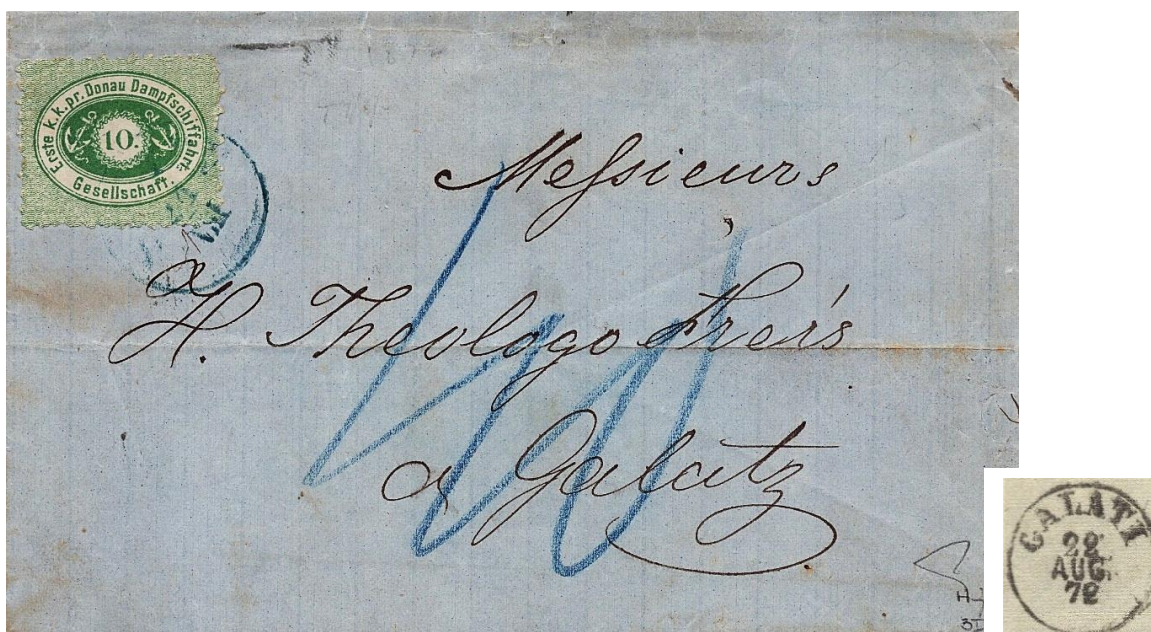 Erste k.k.pr. Donau Dampfschiffahrt.
10.
Gesellschaft.
Messieurs
H. Theologo Freis
a Galatz
GALATZ
28
AUG.
72